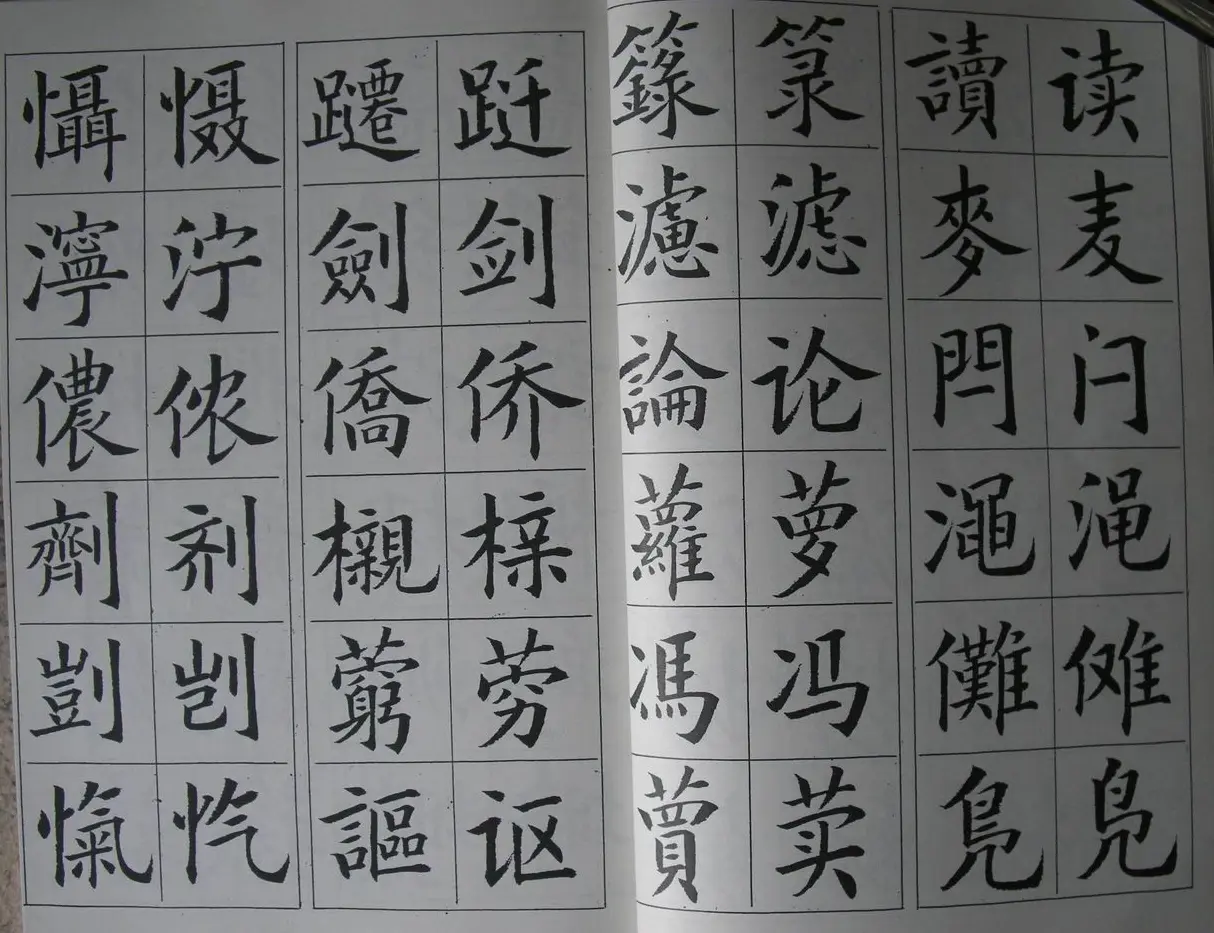 懾 慑 躚 跹 籙 箓 讀 读
濘 泞 劍 剑 濾 滤 麥 麦
儂 侬 僑 侨 論 论 閂 闩
劑 剂 櫬 榇 蘿 萝 澠 渑
剴 剀 藭 䓖 馮 冯 儺 傩
愾 忾 謳 讴 蕒 荬 鳧 凫